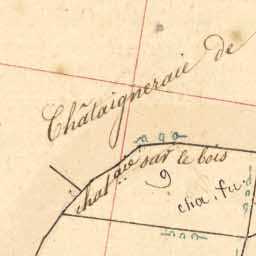 Châtaigneraie de
chat au sur le bois
9
cha. fu.